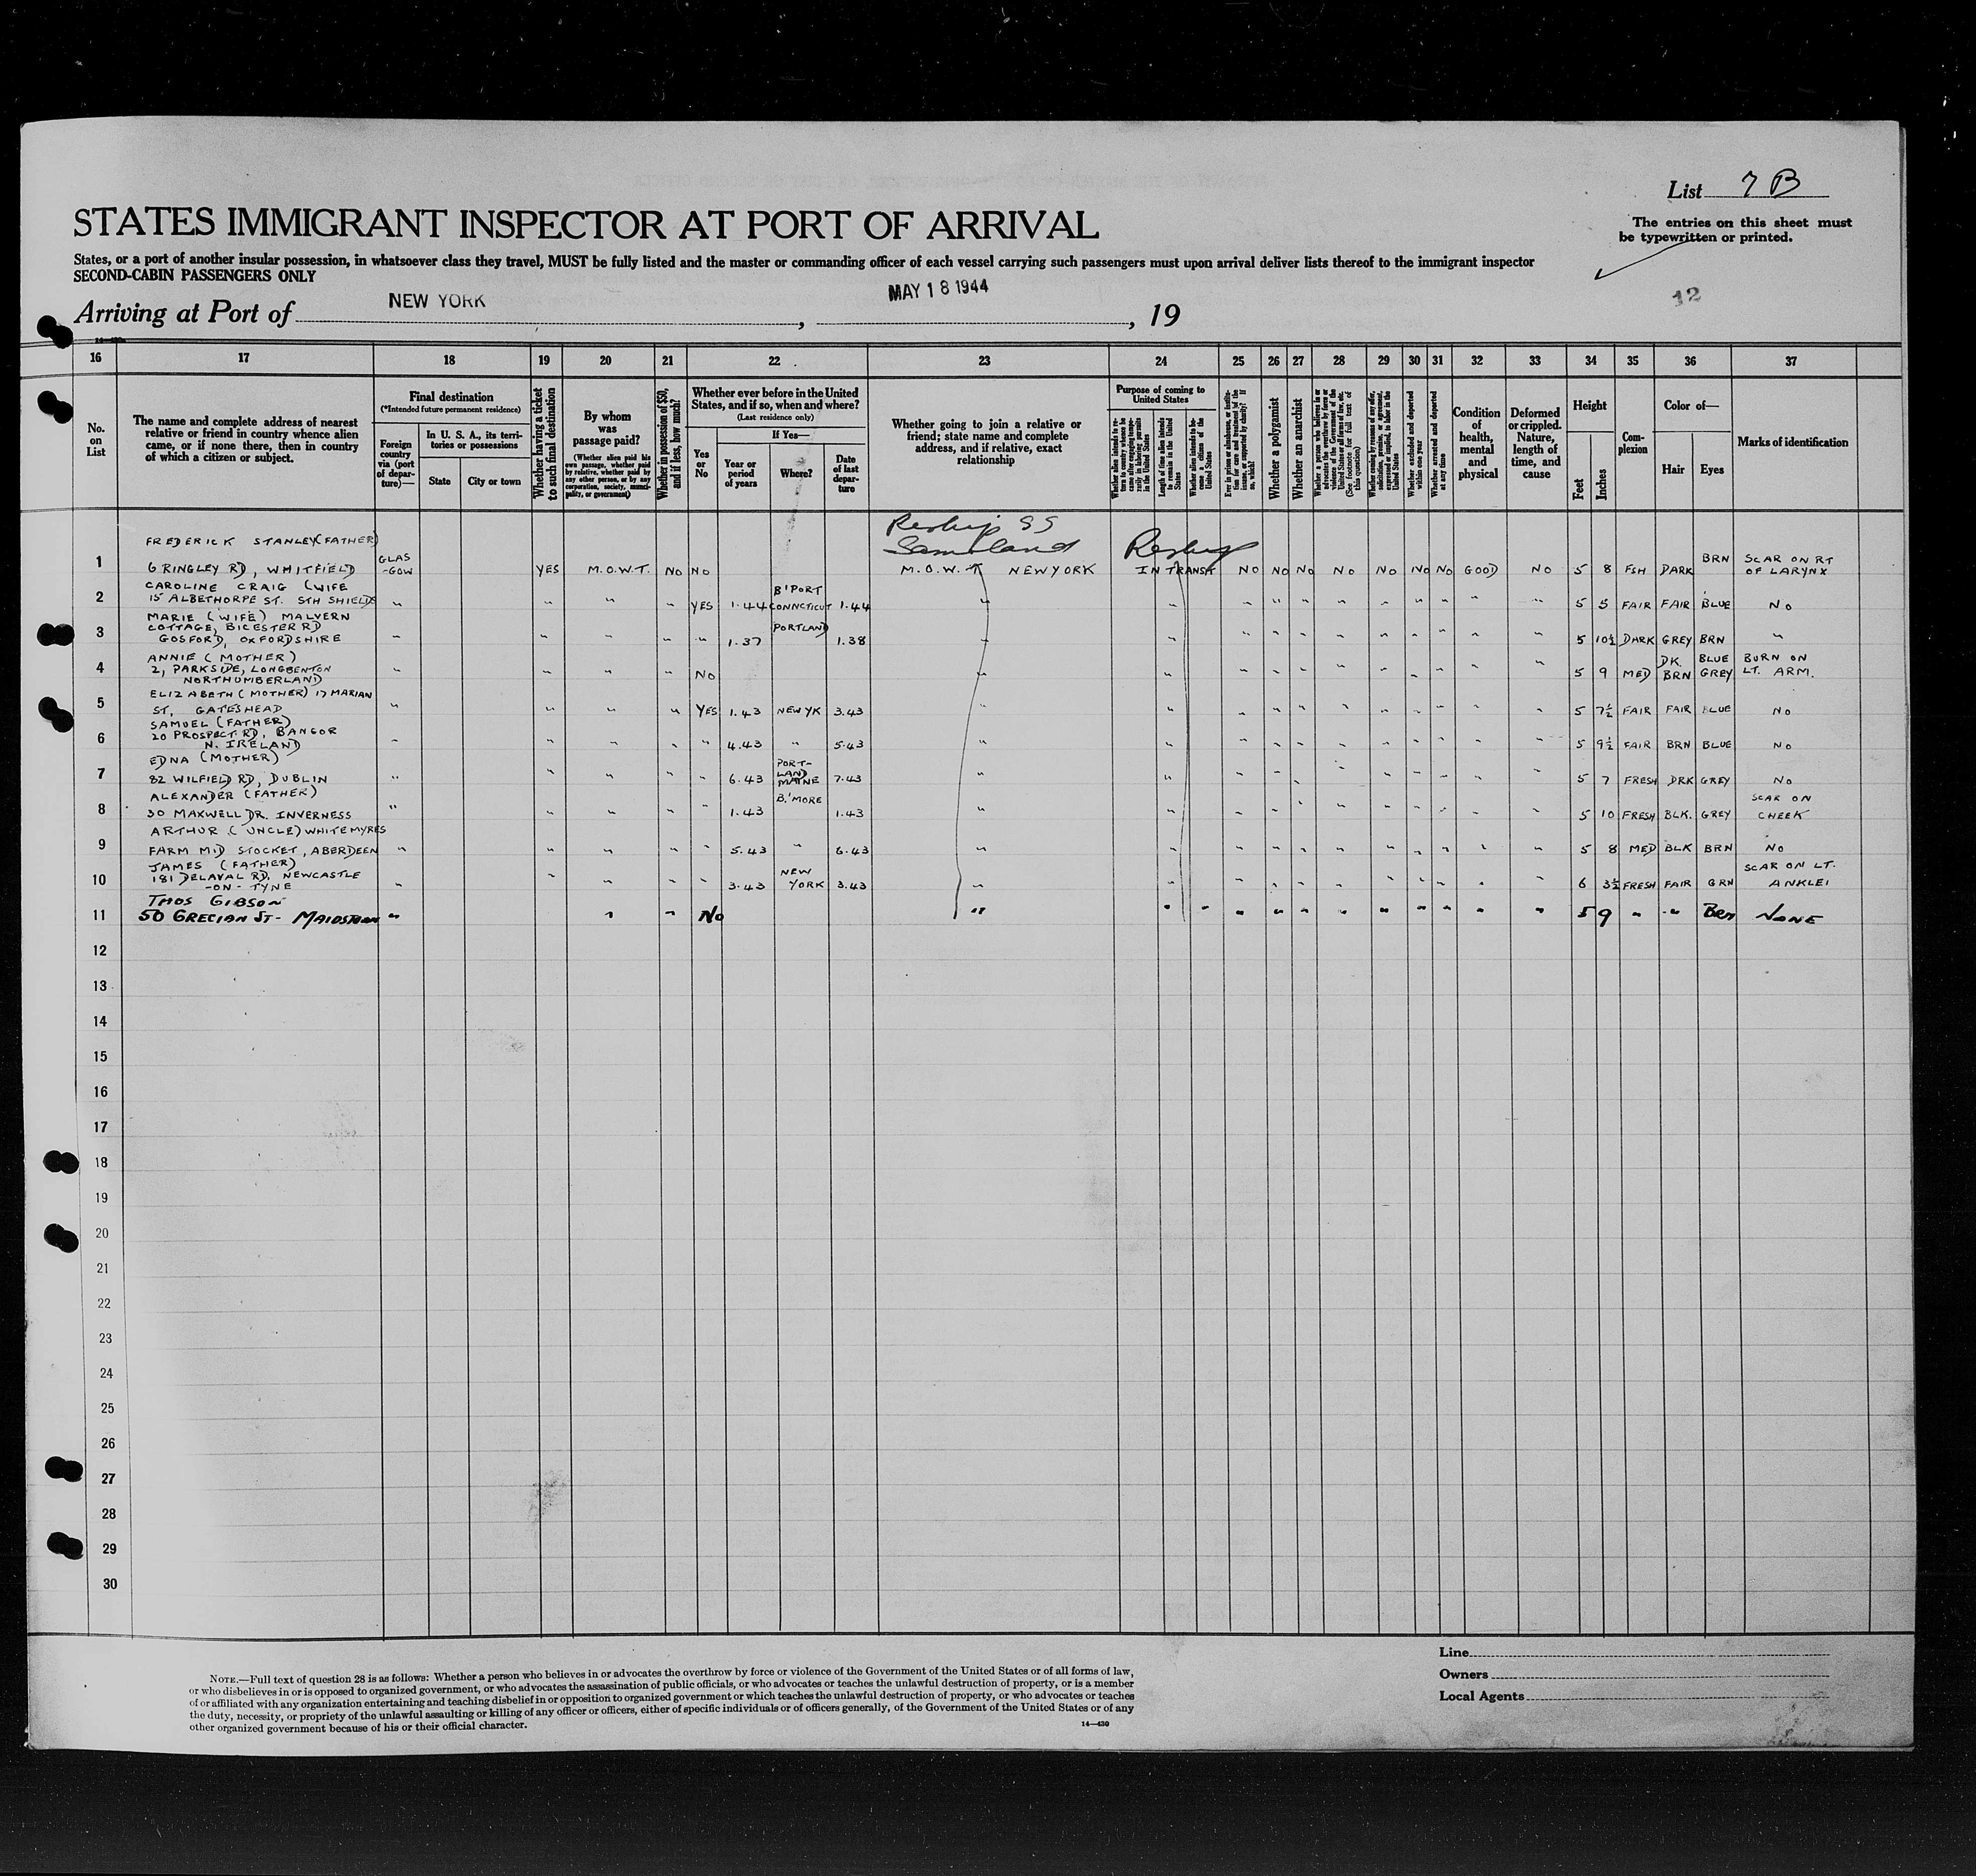 List 7 B
The entries on this sheet must
be typewritten or printed.
STATES IMMIGRANT INSPECTOR AT PORT OF ARRIVAL
States, or a port of another insular possession, in whatsoever class they travel, MUST be fully listed and the master or commanding officer of each vessel carrying such passengers must upon arrival deliver lists thereof to the immigrant inspector
SECOND-CABIN PASSENGERS ONLY
Arriving at Port of NEW YORK, MAY 18 1944, 19
12
16 17 18 19 20 21 22 23 24 25 26 27 28 29 30 31 32 33 34 35 36 37
No. on List
The name and complete address of nearest
relative or friend in country whence alien
came, or if none there, then in country
of which a citizen or subject.
Final destination
(*Intended future permanent residence)
Foreign country via (port of departure)—
In U. S. A., its territories or possessions
State
City or town
Whether having a ticket to such final destination
By whom was passage paid?
(Whether alien paid his own passage, whether paid by relative, whether paid by any other person, or by any corporation, society, municipality, or government)
Whether in possession of $50, and if less, how much?
Whether ever before in the United States, and if so, when and where?
(Last residence only)
Yes or No
If Yes—
Year or period of years
Where?
Date of last departure
Whether going to join a relative or
friend; state name and complete
address, and if relative, exact
relationship
Purpose of coming to United States
Whether alien intends to return to country whence he came after engaging temporarily in laboring pursuits in the United States
Length of time alien intends to remain in the United States
Whether alien intends to become a citizen of the United States
Ever in prison or almshouse, or institution for care and treatment of the insane, or supported by charity? If so, which?
Whether a polygamist
Whether an anarchist
Whether a person who believes in or advocates the overthrow by force or violence of the Government of the United States or all forms of law, etc. (See footnote for full text of this question)
Whether coming by reason of any offer, solicitation, promise, or agreement, expressed or implied, to labor in the United States
Whether excluded and deported within one year
Whether arrested and deported at any time
Condition of health, mental and physical
Deformed or crippled. Nature, length of time, and cause
Height
Feet
Inches
Complexion
Color of—
Hair
Eyes
Marks of identification
Reship SS
Reship
FREDERICK STANLEY (FATHER)
1 6 RINGLEY RD, WHITFIELD GLAS-GOW YES M.O.W.T. NO NO M.O.W.T. NEW YORK IN TRANSIT NO NO NO NO NO NO NO GOOD NO 5 8 FSH DARK BRN SCAR ON RT OF LARYNX
CAROLINE CRAIG (WIFE
2 15 ALBETHORPE ST. STH SHIELDS " " " " YES 1.44 B'PORT CONNCTICUT 1.44 " " " " " " " " " " " 5 5 FAIR FAIR BLUE NO
MARIE (WIFE) MALVERN
COTTAGE, BICESTER RD
3 GOSFORD, OXFORDSHIRE " " " " " 1.37 PORTLAND 1.38 " " " " " " " " " " " 5 10½ DARK GREY BRN "
ANNIE (MOTHER)
2, PARKSIDE, LONGBENTON
4 NORTHUMBERLAND " " " " NO " " " " " " " " " " " 5 9 MED DK. BRN BLUE GREY BURN ON LT. ARM.
ELIZABETH (MOTHER) 17 MARIAN
5 ST, GATESHEAD " " " " YES 1.43 NEW YK 3.43 " " " " " " " " " " " 5 7½ FAIR FAIR BLUE NO
SAMUEL (FATHER)
20 PROSPECT RD, BANGOR
6 N. IRELAND " " " " " 4.43 " 5.43 " " " " " " " " " " " 5 9½ FAIR BRN BLUE NO
EDNA (MOTHER)
7 82 WILFIELD RD, DUBLIN " " " " " 6.43 PORT-LAND MAINE 7.43 " " " " " " " " " " " 5 7 FRESH DRK GREY NO
ALEXANDER (FATHER)
8 30 MAXWELL DR. INVERNESS " " " " " 1.43 B.'MORE 1.43 " " " " " " " " " " " 5 10 FRESH BLK. GREY SCAR ON CHEEK
ARTHUR (UNCLE) WHITEMYRES
9 FARM MID STOCKET, ABERDEEN " " " " " 5.43 " 6.43 " " " " " " " " " " " 5 8 MED BLK BRN NO
JAMES (FATHER)
181 DELAVAL RD, NEWCASTLE
10 -ON-TYNE " " " " " 3.43 NEW YORK 3.43 " " " " " " " " " " " 6 3½ FRESH FAIR GRN SCAR ON LT. ANKLE
THOS GIBSON
11 50 GRECIAN ST- " " " NO " " " " " " " " " " " " 5 9 " " BRN NONE
12
13
14
15
16
17
18
19
20
21
22
23
24
25
26
27
28
29
30
NOTE.—Full text of question 28 is as follows: Whether a person who believes in or advocates the overthrow by force or violence of the Government of the United States or of all forms of law,
or who disbelieves in or is opposed to organized government, or who advocates the assassination of public officials, or who advocates or teaches the unlawful destruction of property, or is a member
of or affiliated with any organization entertaining and teaching disbelief in or opposition to organized government or which teaches the unlawful destruction of property, or who advocates or teaches
the duty, necessity, or propriety of the unlawful assaulting or killing of any officer or officers, either of specific individuals or of officers generally, of the Government of the United States or of any
other organized government because of his or their official character.
14—430
Line
Owners
Local Agents